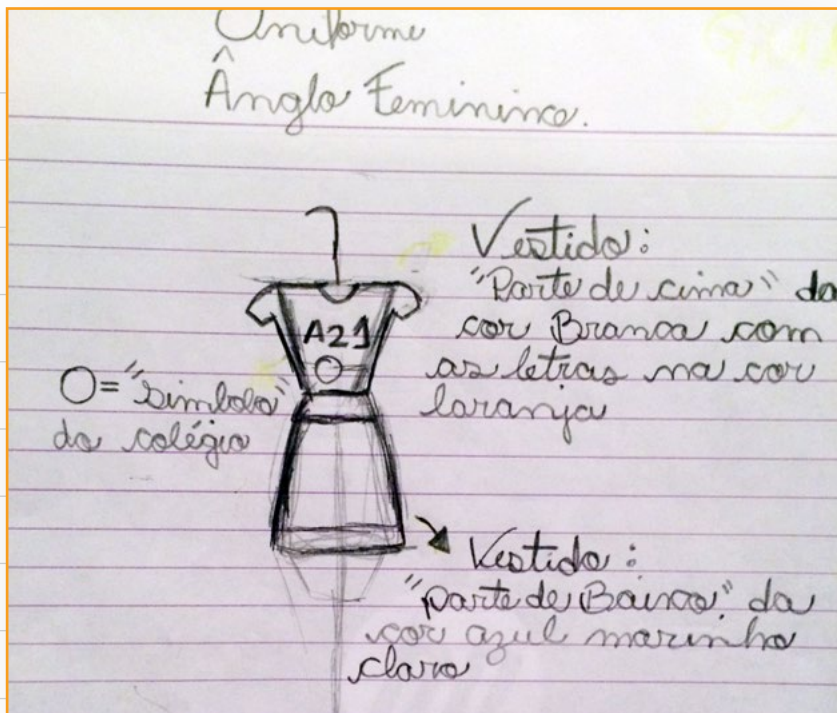 Uniforme
Ânglo Feminino.
Vestido:
"Parte de cima" da
cor Branca com
as letras na cor
laranja
A21
O= "símbolo"
do colégio
Vestido:
"parte de Baixo" da
cor azul marinho
claro